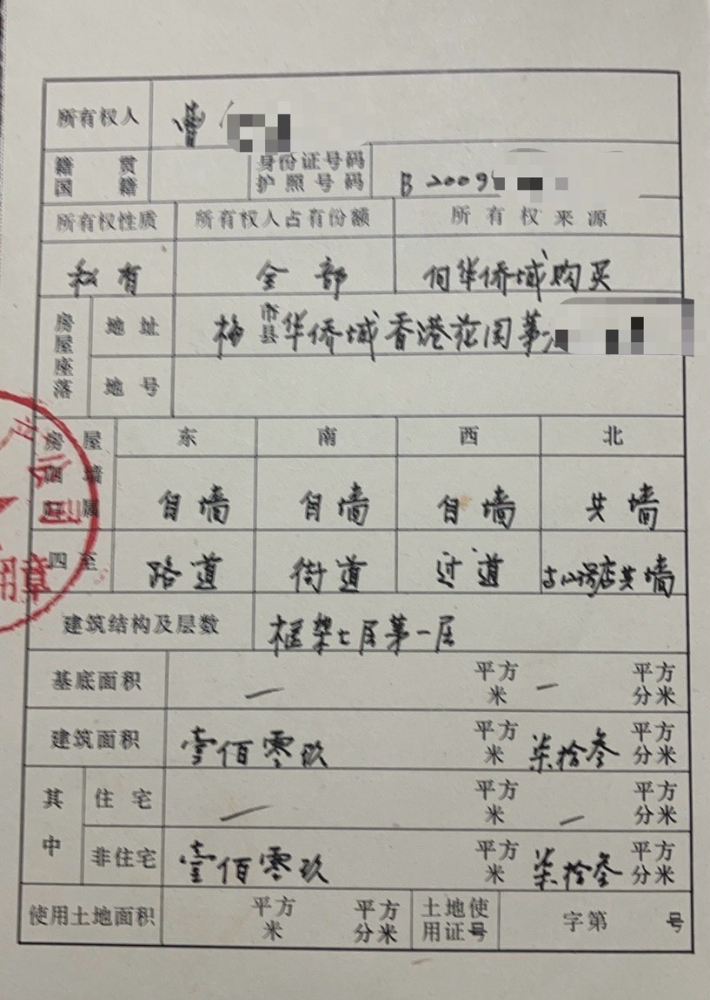 所有权人 曹
籍贯 身份证号码
国籍 护照号码 B2009
所有权性质 所有权人占有份额 所有权来源
私有 全部 向华侨城购买
房屋座落 地址 市县 华侨城香港花园第
地号
房屋 东 南 西 北
四墙归属 自墙 自墙 自墙 共墙
四至 路道 街道 过道 共墙
建筑结构及层数 框架七层第一层
基底面积 — 平方米 — 平方分米
建筑面积 壹佰零玖 平方米 柒拾叁 平方分米
其中 住宅 — 平方米 — 平方分米
非住宅 壹佰零玖 平方米 柒拾叁 平方分米
使用土地面积 平方米 平方分米 土地使用证号 字第 号
用章